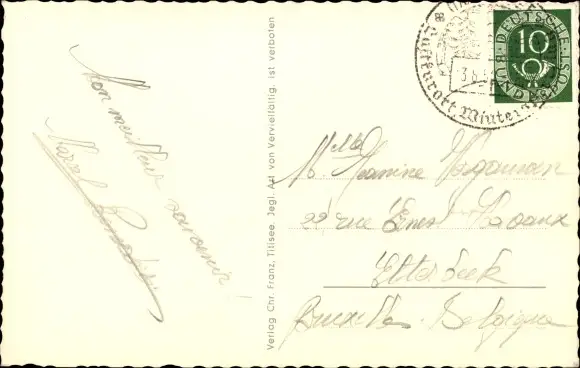 Mon meilleur souvenir!
Marcel
Verlag Chr. Franz, Titisee. Jegl. Art von Vervielfältig. ist verboten
DEUTSCHE BUNDESPOST
10
Luftkurort Winter
3.6.5
Mlle Jeanine
22 rue Ernest
Etterbeek
Bruxelles. Belgique